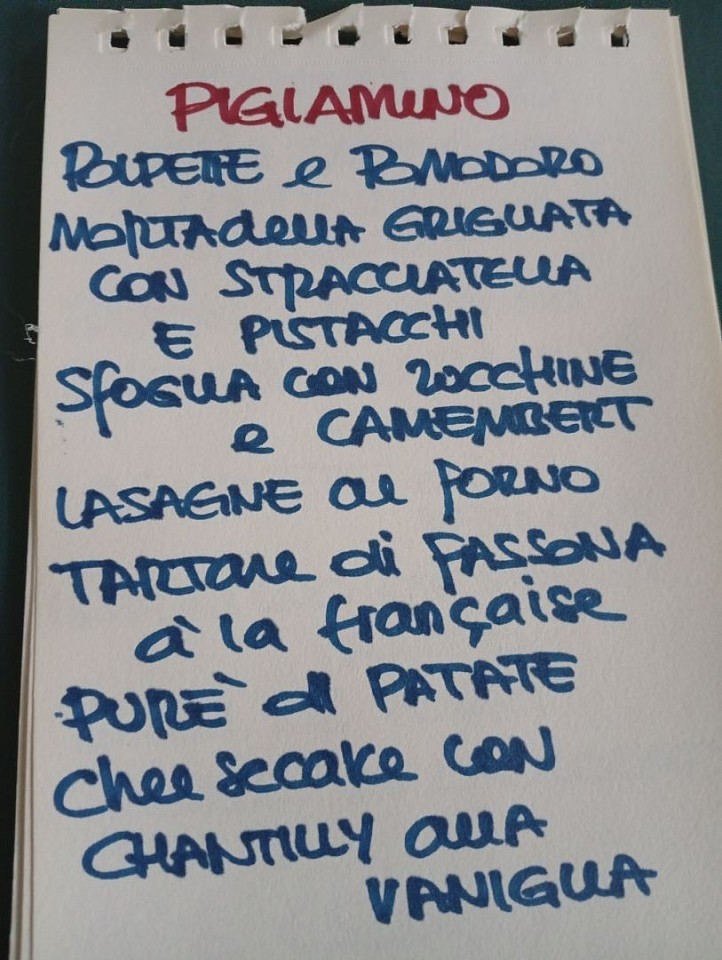 PIGIAMINO
POLPETTE e POMODORO
MORTADELLA GRIGLIATA
CON STRACCIATELLA
E PISTACCHI
SFOGLIA CON ZUCCHINE
e CAMEMBERT
LASAGNE al FORNO
TARTARE di FASSONA
à la française
PURÈ di PATATE
Cheesecake CON
CHANTILLY alla
VANIGLIA